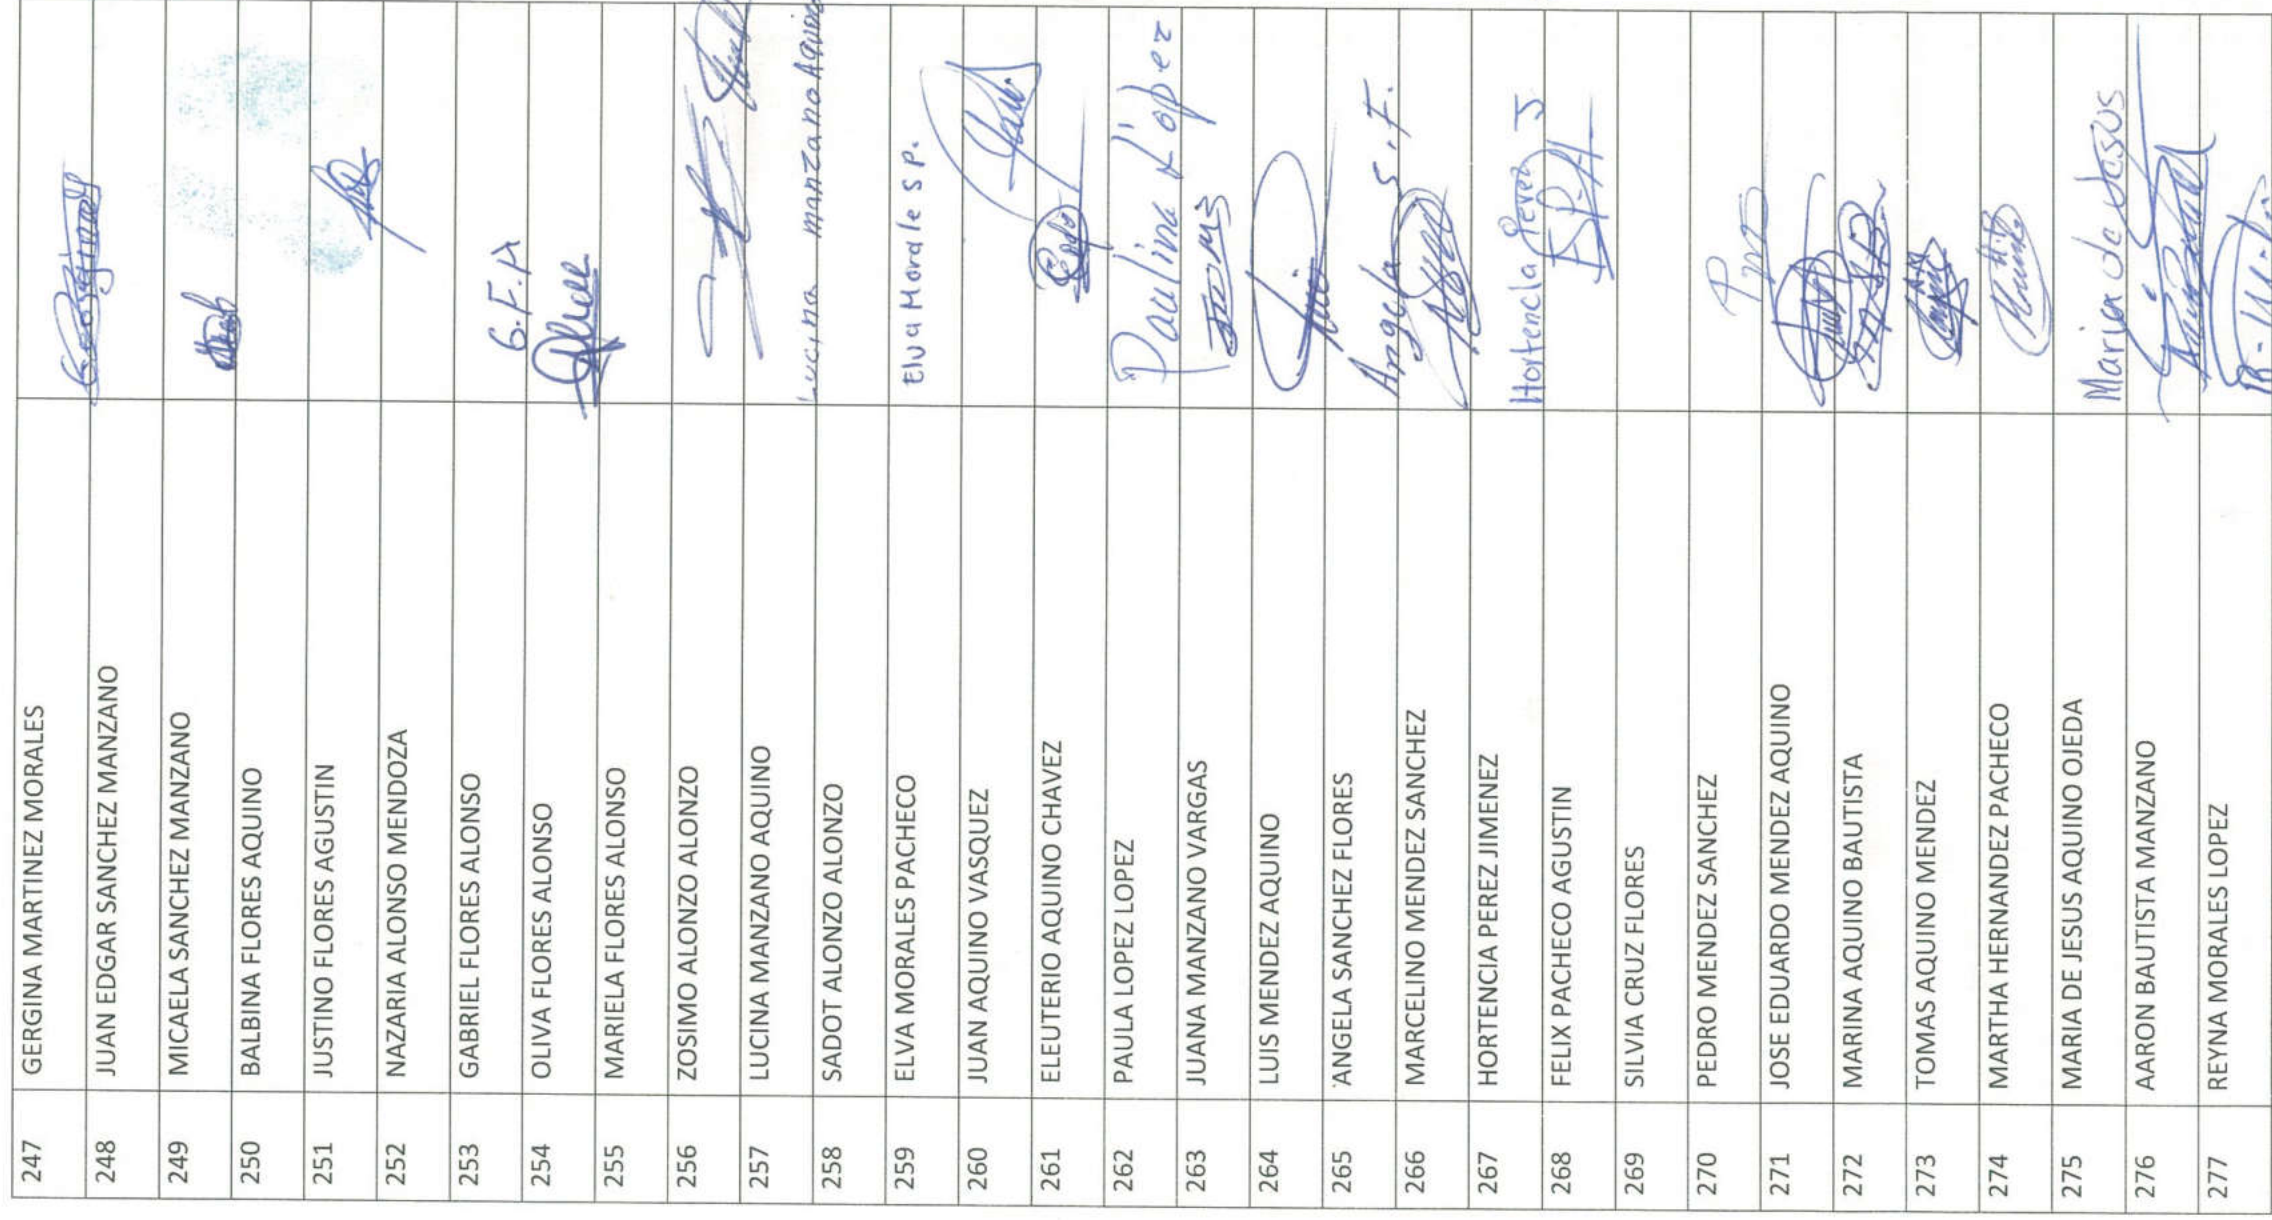 247 GERGINA MARTINEZ MORALES
248 JUAN EDGAR SANCHEZ MANZANO
249 MICAELA SANCHEZ MANZANO
250 BALBINA FLORES AQUINO
251 JUSTINO FLORES AGUSTIN
252 NAZARIA ALONSO MENDOZA
253 GABRIEL FLORES ALONSO G.F.A
254 OLIVA FLORES ALONSO
255 MARIELA FLORES ALONSO
256 ZOSIMO ALONZO ALONZO
257 LUCINA MANZANO AQUINO Lucina manzano Aquino
258 SADOT ALONZO ALONZO
259 ELVA MORALES PACHECO Elva Morale S P.
260 JUAN AQUINO VASQUEZ
261 ELEUTERIO AQUINO CHAVEZ
262 PAULA LOPEZ LOPEZ Paulina López
263 JUANA MANZANO VARGAS
264 LUIS MENDEZ AQUINO
265 ANGELA SANCHEZ FLORES Angela S.F.
266 MARCELINO MENDEZ SANCHEZ
267 HORTENCIA PEREZ JIMENEZ Hortencia Perez J
268 FELIX PACHECO AGUSTIN
269 SILVIA CRUZ FLORES
270 PEDRO MENDEZ SANCHEZ
271 JOSE EDUARDO MENDEZ AQUINO
272 MARINA AQUINO BAUTISTA
273 TOMAS AQUINO MENDEZ
274 MARTHA HERNANDEZ PACHECO
275 MARIA DE JESUS AQUINO OJEDA Maria de Jesus
276 AARON BAUTISTA MANZANO
277 REYNA MORALES LOPEZ